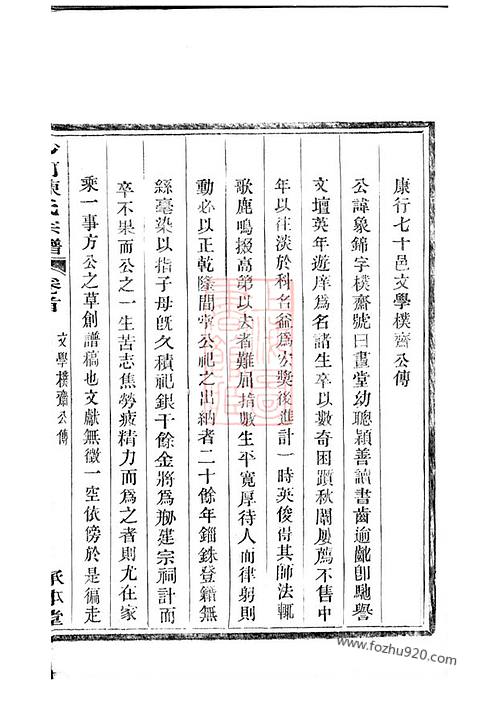 康行七十邑文學樸齋公傳
公諱象錦字樸齋號曰晝堂幼聰穎善讀書齒逾齔卽馳譽
文壇英年遊庠爲名諸生卒以數奇困躓秋闈屢薦不售中
年以往淡於科名益爲宏奬後進計一時英俊得其師法輒
歌鹿鳴掇高第以去者難屈指數生平寬厚待人而律躬則
動必以正乾隆間宰公祀之出納者二十餘年錙銖登籍無
絲毫染以指子母旣久積祀銀千餘金將爲剏建宗祠計而
卒不果而公之一生苦志焦勞疲精力而爲之者則尤在家
乘一事方公之草創譜稿也文獻無徵一空依傍於是徧走
陳氏宗譜 卷首
文學樸齋公傳
本堂
www.fozhu920.com